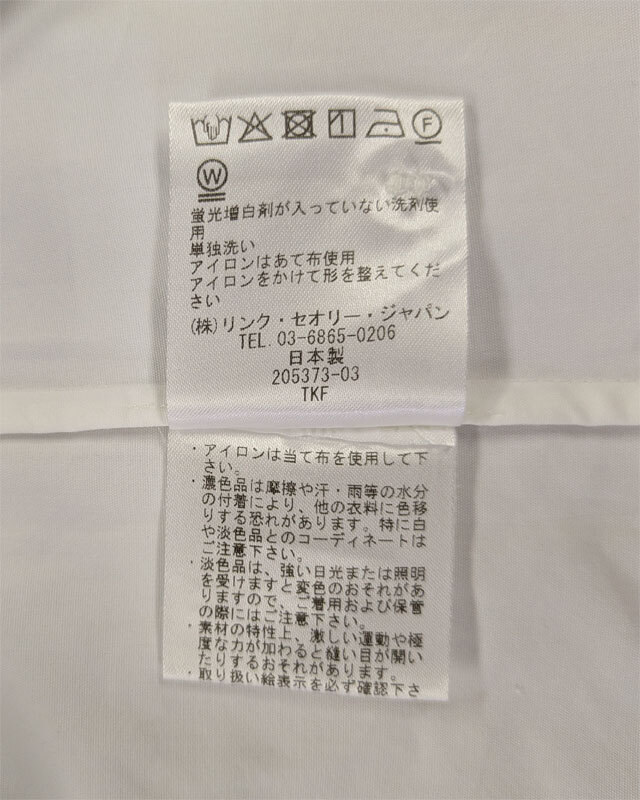 F
W
蛍光増白剤が入っていない洗剤使
用
単独洗い
アイロンはあて布使用
アイロンをかけて形を整えてくだ
さい
(株)リンク・セオリー・ジャパン
TEL. 03-6865-0206
日本製
205373-03
TKF
・アイロンは当て布を使用して下
さい。
・濃色品は摩擦や汗・雨等の水分
の付着により、他の衣料に色移
りする恐れがあります。特に白
や淡色品とのコーディネートは
ご注意下さい。
・淡色品は、強い日光または照明
を受けますと変色のおそれがあ
りますので、ご着用および保管
の際にはご注意下さい。
・素材の特性上、激しい運動や極
度な力が加わると縫い目が開い
たりするおそれがあります。
・取り扱い絵表示を必ず確認下さ